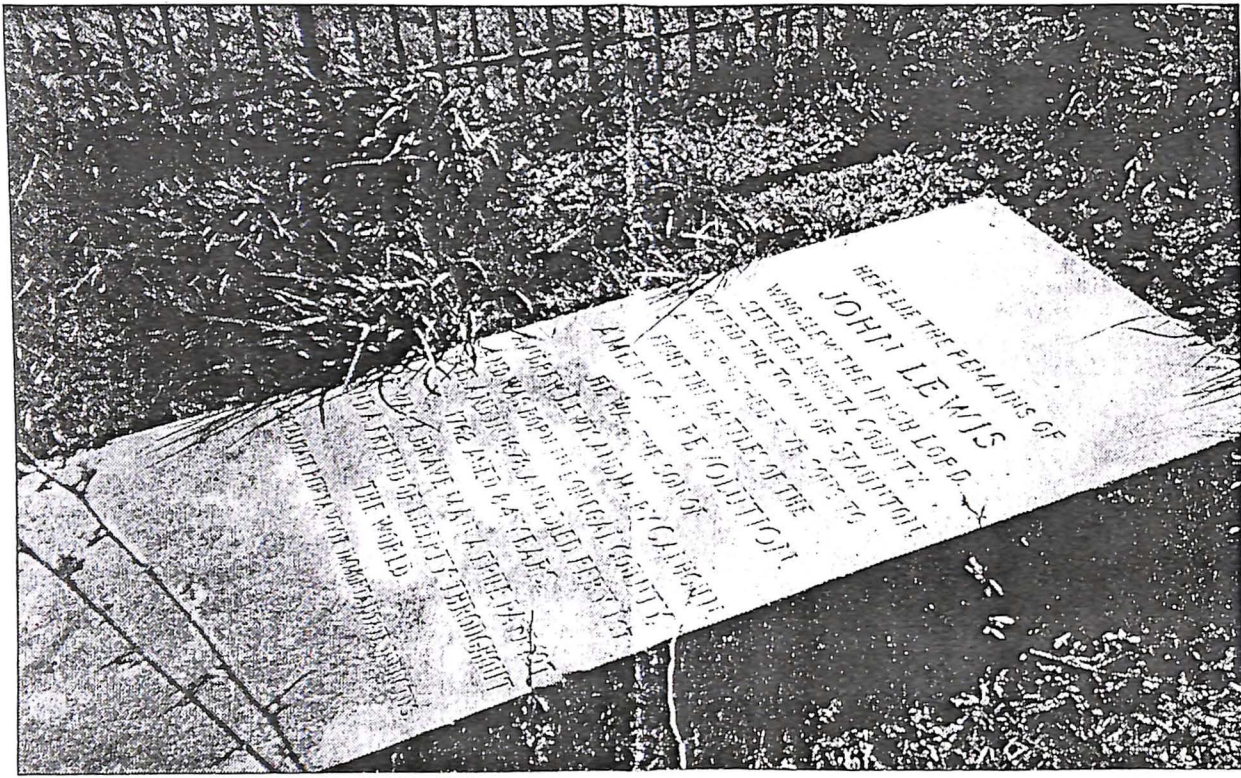 HERE LIE THE REMAINS OF
JOHN LEWIS
WHO SLEW THE IRISH LORD,
SETTLED AUGUSTA COUNTY,
LOCATED THE TOWN OF STAUNTON
FIVE SONS TO
FIGHT THE BATTLE OF THE
AMERICAN REVOLUTION
HE WAS THE SON OF
ANDREW LEWIS AND MARY CALHOUN
AND WAS BORN IN DONEGAL COUNTY,
AND DIED FEBY 1ST
1762 AGED 84 YEARS
A BRAVE MAN, A TRUE PATRIOT
AND A FRIEND OF LIBERTY THROUGHOUT
THE WORLD